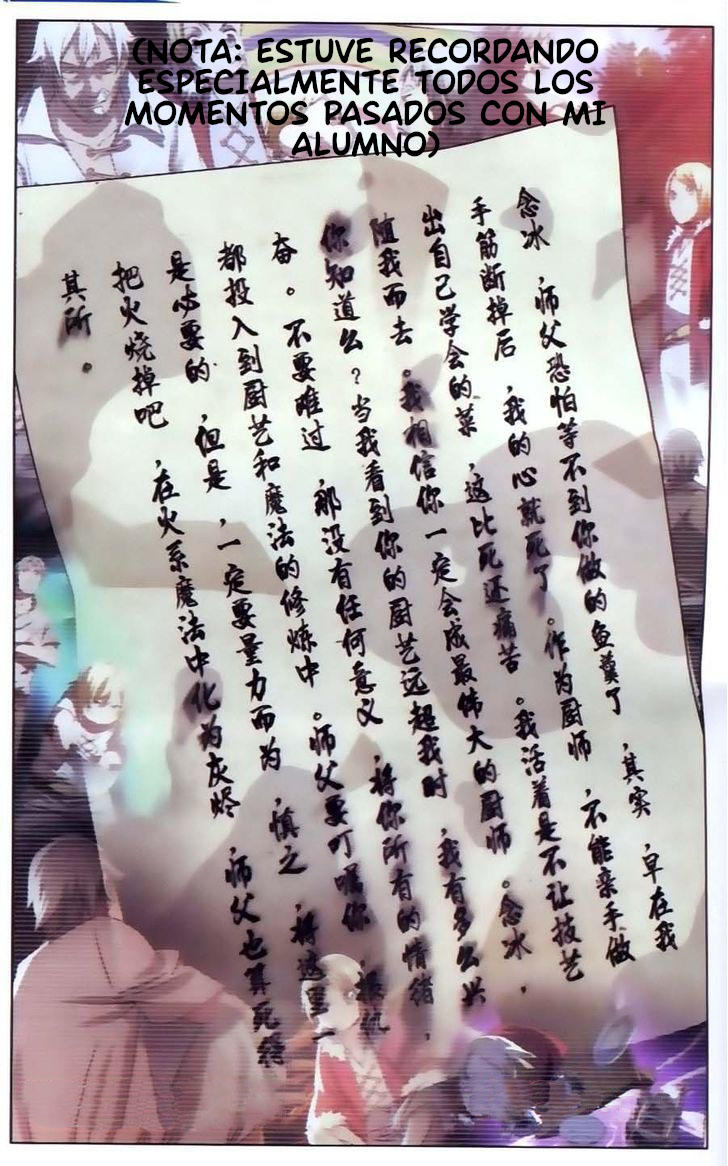 (NOTA: ESTUVE RECORDANDO
ESPECIALMENTE TODOS LOS
MOMENTOS PASADOS CON MI
ALUMNO)
念冰，师父恐怕等不到你做的鱼羹了，其实，早在我
手筋断掉后，我的心就死了。作为厨师，不能亲手做
出自己学会的菜，这比死还痛苦。我活着是不让技艺
随我而去。我相信你一定会成最伟大的厨师。念冰，
你知道么？当我看到你的厨艺远超我时，我有多么兴
奋。不要难过，那没有任何意义，将你所有的情绪，
都投入到厨艺和魔法的修炼中。师父要叮嘱你，报仇
是必要的，但是，一定要量力而为，慎之，将这里一
把火烧掉吧，在火系魔法中化为灰烬，师父也算死得
其所。